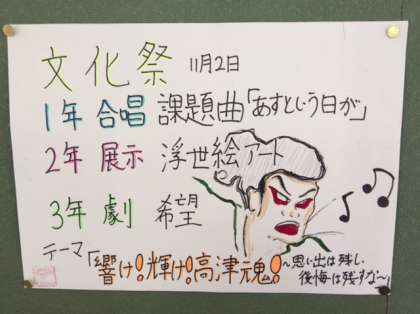 文化祭 11月2日
1年 合唱 課題曲「あすという日が」
2年 展示 浮世絵アート
3年 劇 希望
テーマ「響け!輝け!高津魂!
～思い出は残し
後悔は残すな～」